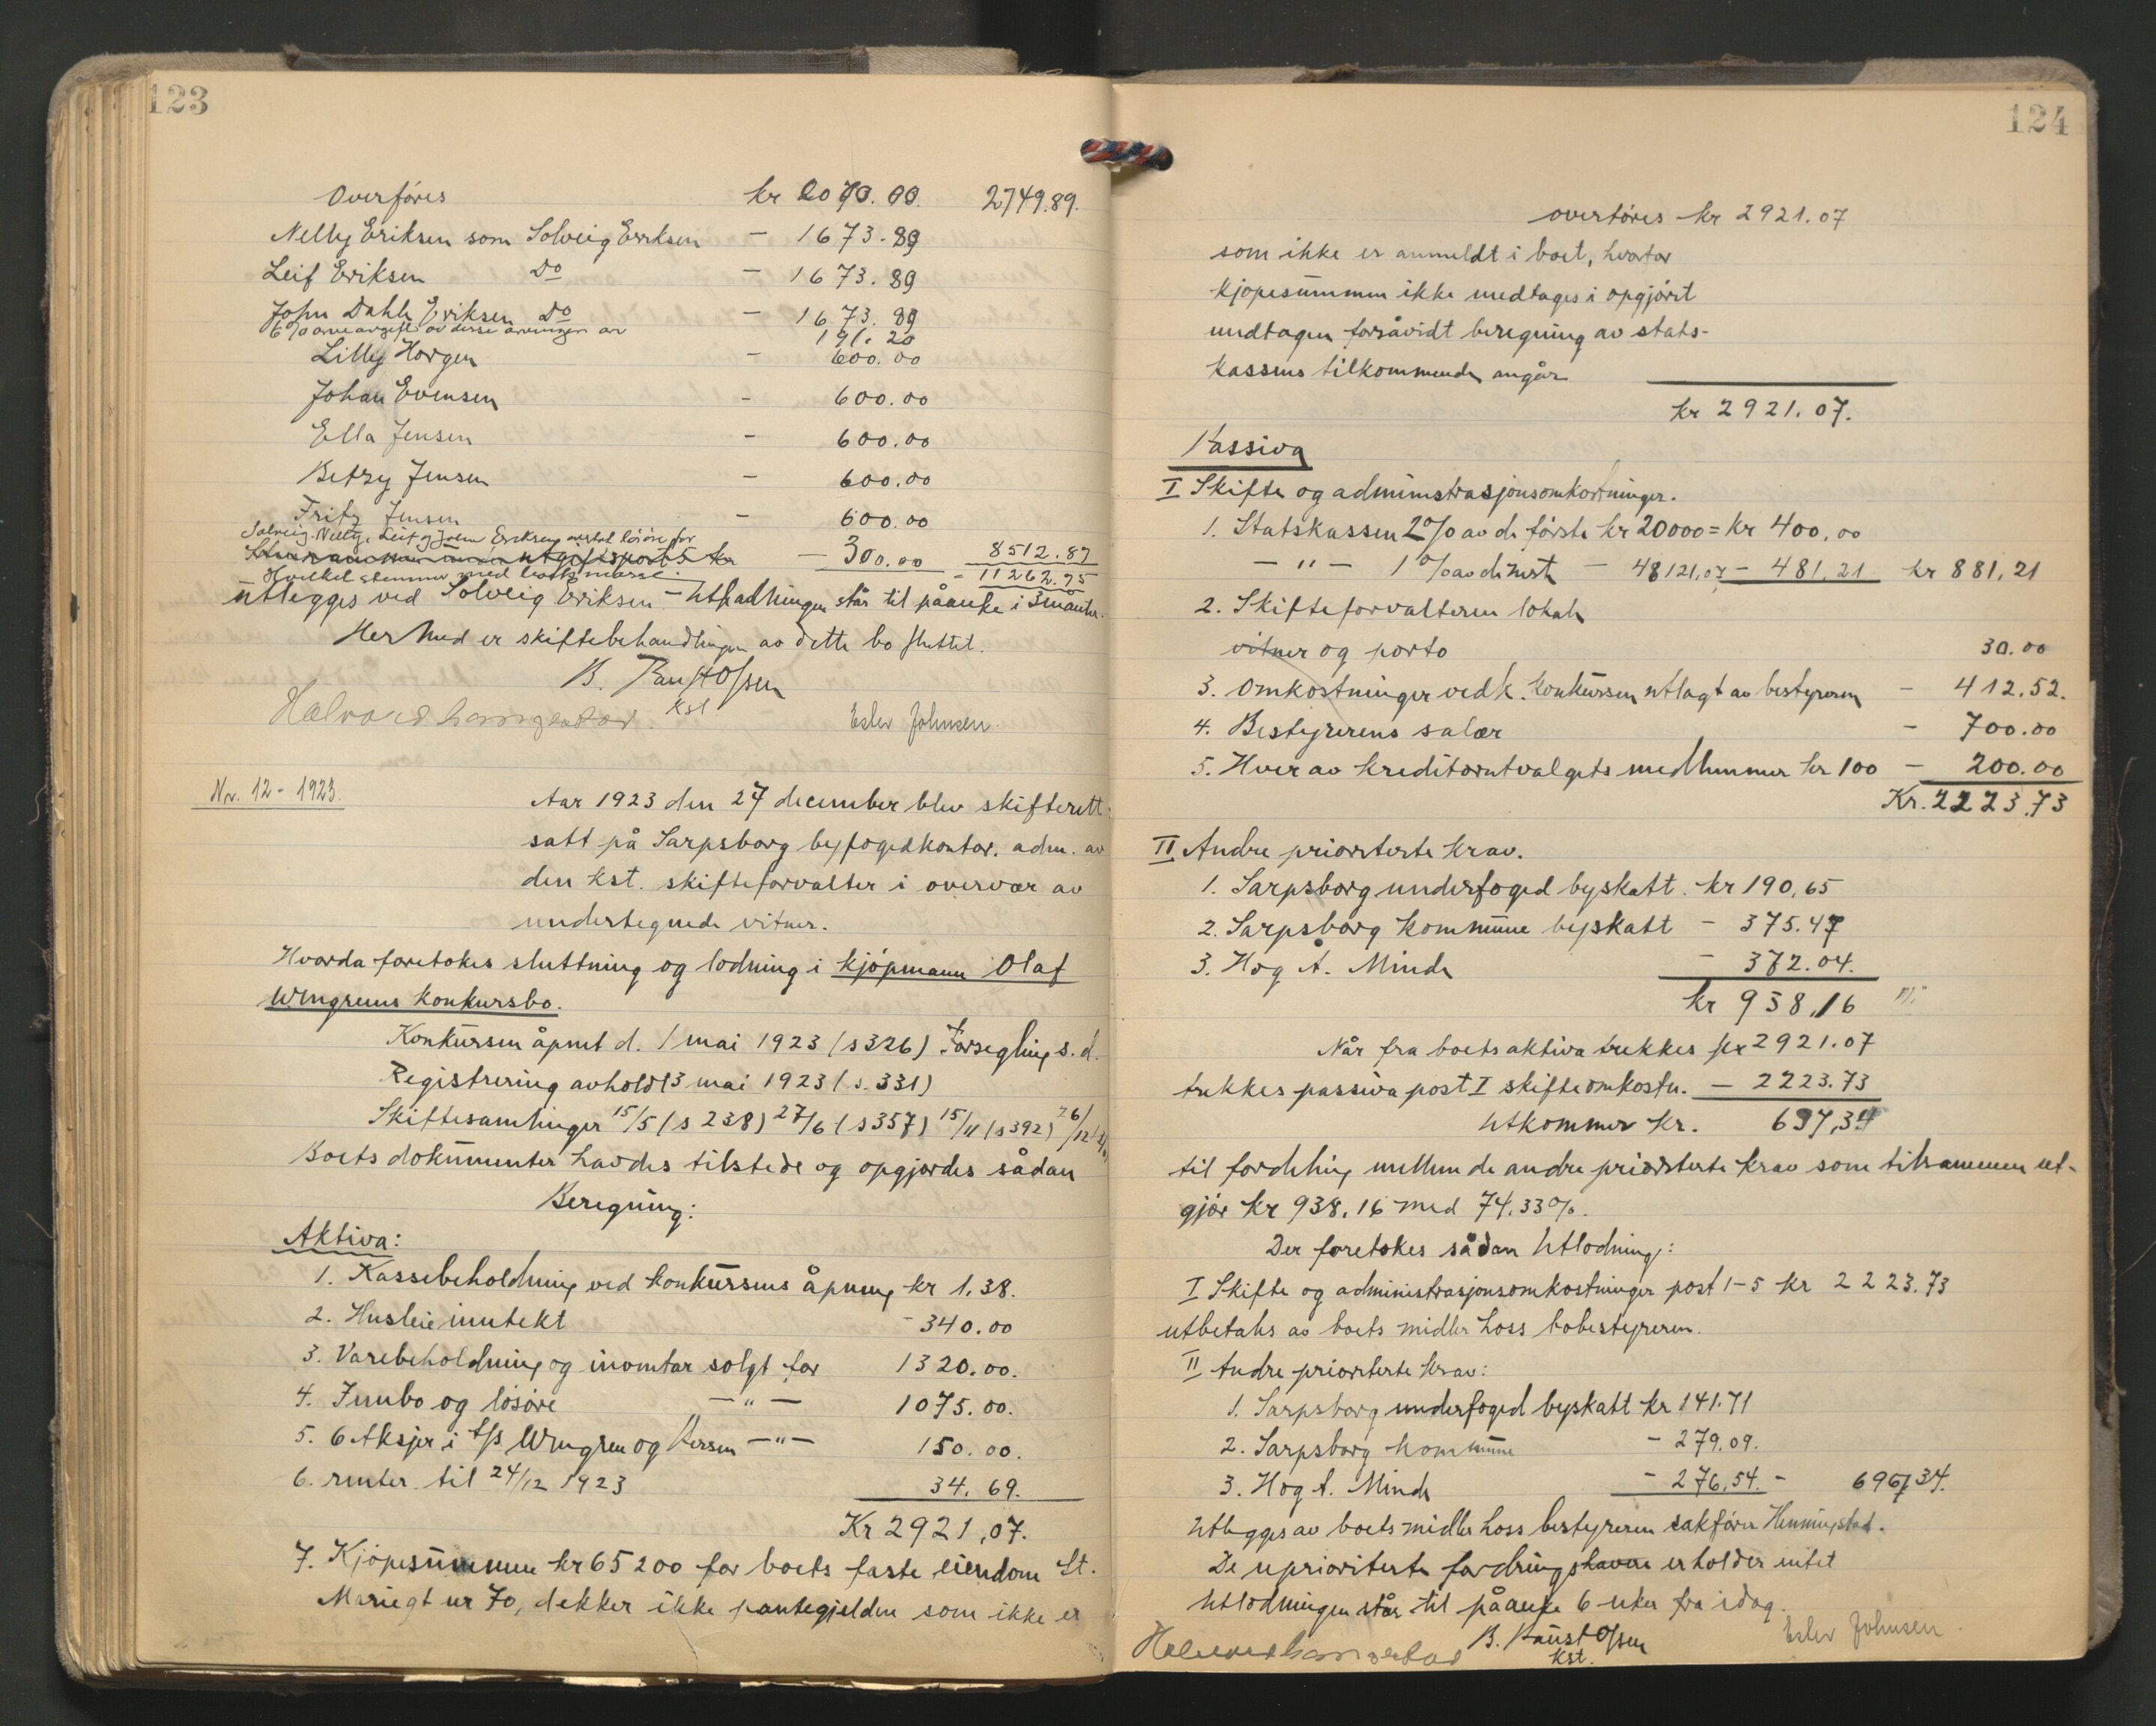 123
Overføres kr 2070.00. 2749.89.
Nelly Eriksen som Solveig Eriksen - 1673.89
Leif Eriksen Do - 1673.89
John Dahle Eriksen Do - 16.73.89
6% arveavgift av disse arvinger av 191.20
Lilly Horgen - 600.00
Johan Evensen - 600.00
Ella Jensen - 600.00
Betzy Jensen - 600.00
Fritz Jensen - 600.00
Solveig, Nelly, Leif og John Eriksen løsøre for
utgiftspost 5 kr - 300.00 8512.87
Hvilket stemmer med boets masse. - 11262.75
utlegges ved Solveig Eriksen - Utlodningen står til påanke i 3 måneter.
Hermed er skiftebehandlingen av dette bo sluttet.
B. Paust Olsen
kst
Esler Johnsen.
Nr. 12 - 1923.
Aar 1923 den 27 december blev skifterett
satt på Sarpsborg byfogedkontor. adm. av
den kst. skifteforvalter i overvær av
undertegnede vitner.
Hvorda foretokes sluttning og lodning i kjøpmann Olaf
Wengrens konkursbo.
Konkursen åpnet d. 1 mai 1923 (s 326) Forsegling s. d.
Registrering avholdt 3 mai 1923 (s. 331)
Skiftesamlinger 15/5 (s 238) 27/6 (s 357) 15/11 (s 392) 26/12
Boets dokumenter havdes tilstede og opgjordes sådan
Beregning:
Aktiva:
1. Kassebeholdning ved konkursens åpning kr 1.38.
2. Husleieinntekt - 340.00
3. Varebeholdning og inventar solgt for 1320.00.
4. Innbo og løsøre — " — 1075.00.
5. 6 Aksjer i A/S Wengren og Iversen — " — 150.00.
6. renter til 24/12 1923 34.69.
Kr 2921,07.
7. Kjøpesummen kr 65200 for boets faste eiendom St.
Mariegt nr 70, dekker ikke pantegjelden som ikke er
124
overføres kr 2921.07
som ikke er anmeldt i boet, hvorfor
kjøpesummen ikke medtages i opgjøret
undtagen forsåvidt beregning av stats-
kassens tilkommende angår
kr 2921.07.
Passiva
I Skifte og administrasjonsomkostninger.
1. Statskassen 2% av de første kr 20000 = kr 400,00
— " — 1% av de næste - 48121,07 - 481,21 kr 881,21
2. Skifteforvalteren lokale
vitner og porto 30.00
3. Omkostninger ved k. konkursen utlagt av bestyreren - 412.52.
4. Bestyrerens salær - 700.00
5. Hver av kreditorutvalgets medlemmer kr 100 - 200.00
Kr. 2223,73
II Andre prioriterte krav.
1. Sarpsborg underfoged byskatt. kr 190,65
2. Sarpsborg kommune byskatt - 375.47
3. Hog A. Minde - 372.04.
kr 938,16
Når fra boets aktiva trekkes kr 2921.07
trekkes passiva post I skifteomkostn. - 2223.73
Utkommer kr. 697,34
til fordeling mellem de andre prioriterte krav som tilsammen ut-
gjør kr 938.16 med 74.33%.
Der foretokes sådan Utlodning:
I Skifte og administrasjonsomkostninger post 1-5 kr 2223.73
utbetales av boets midler hoss bobestyreren.
II Andre prioriterte krav:
1. Sarpsborg underfoged byskatt kr 141.71
2. Sarpsborg kommune - 279.09.
3. Hog A. Minde - 276,54. - 697,34.
Utlegges av boets midler hoss bestyreren sakfører Henningstad.
De uprioriterte fordringshavere erholder intet
Utlodningen står til påanke 6 uker fra idag.
B. Paust Olsen
kst.
Esler Johnsen